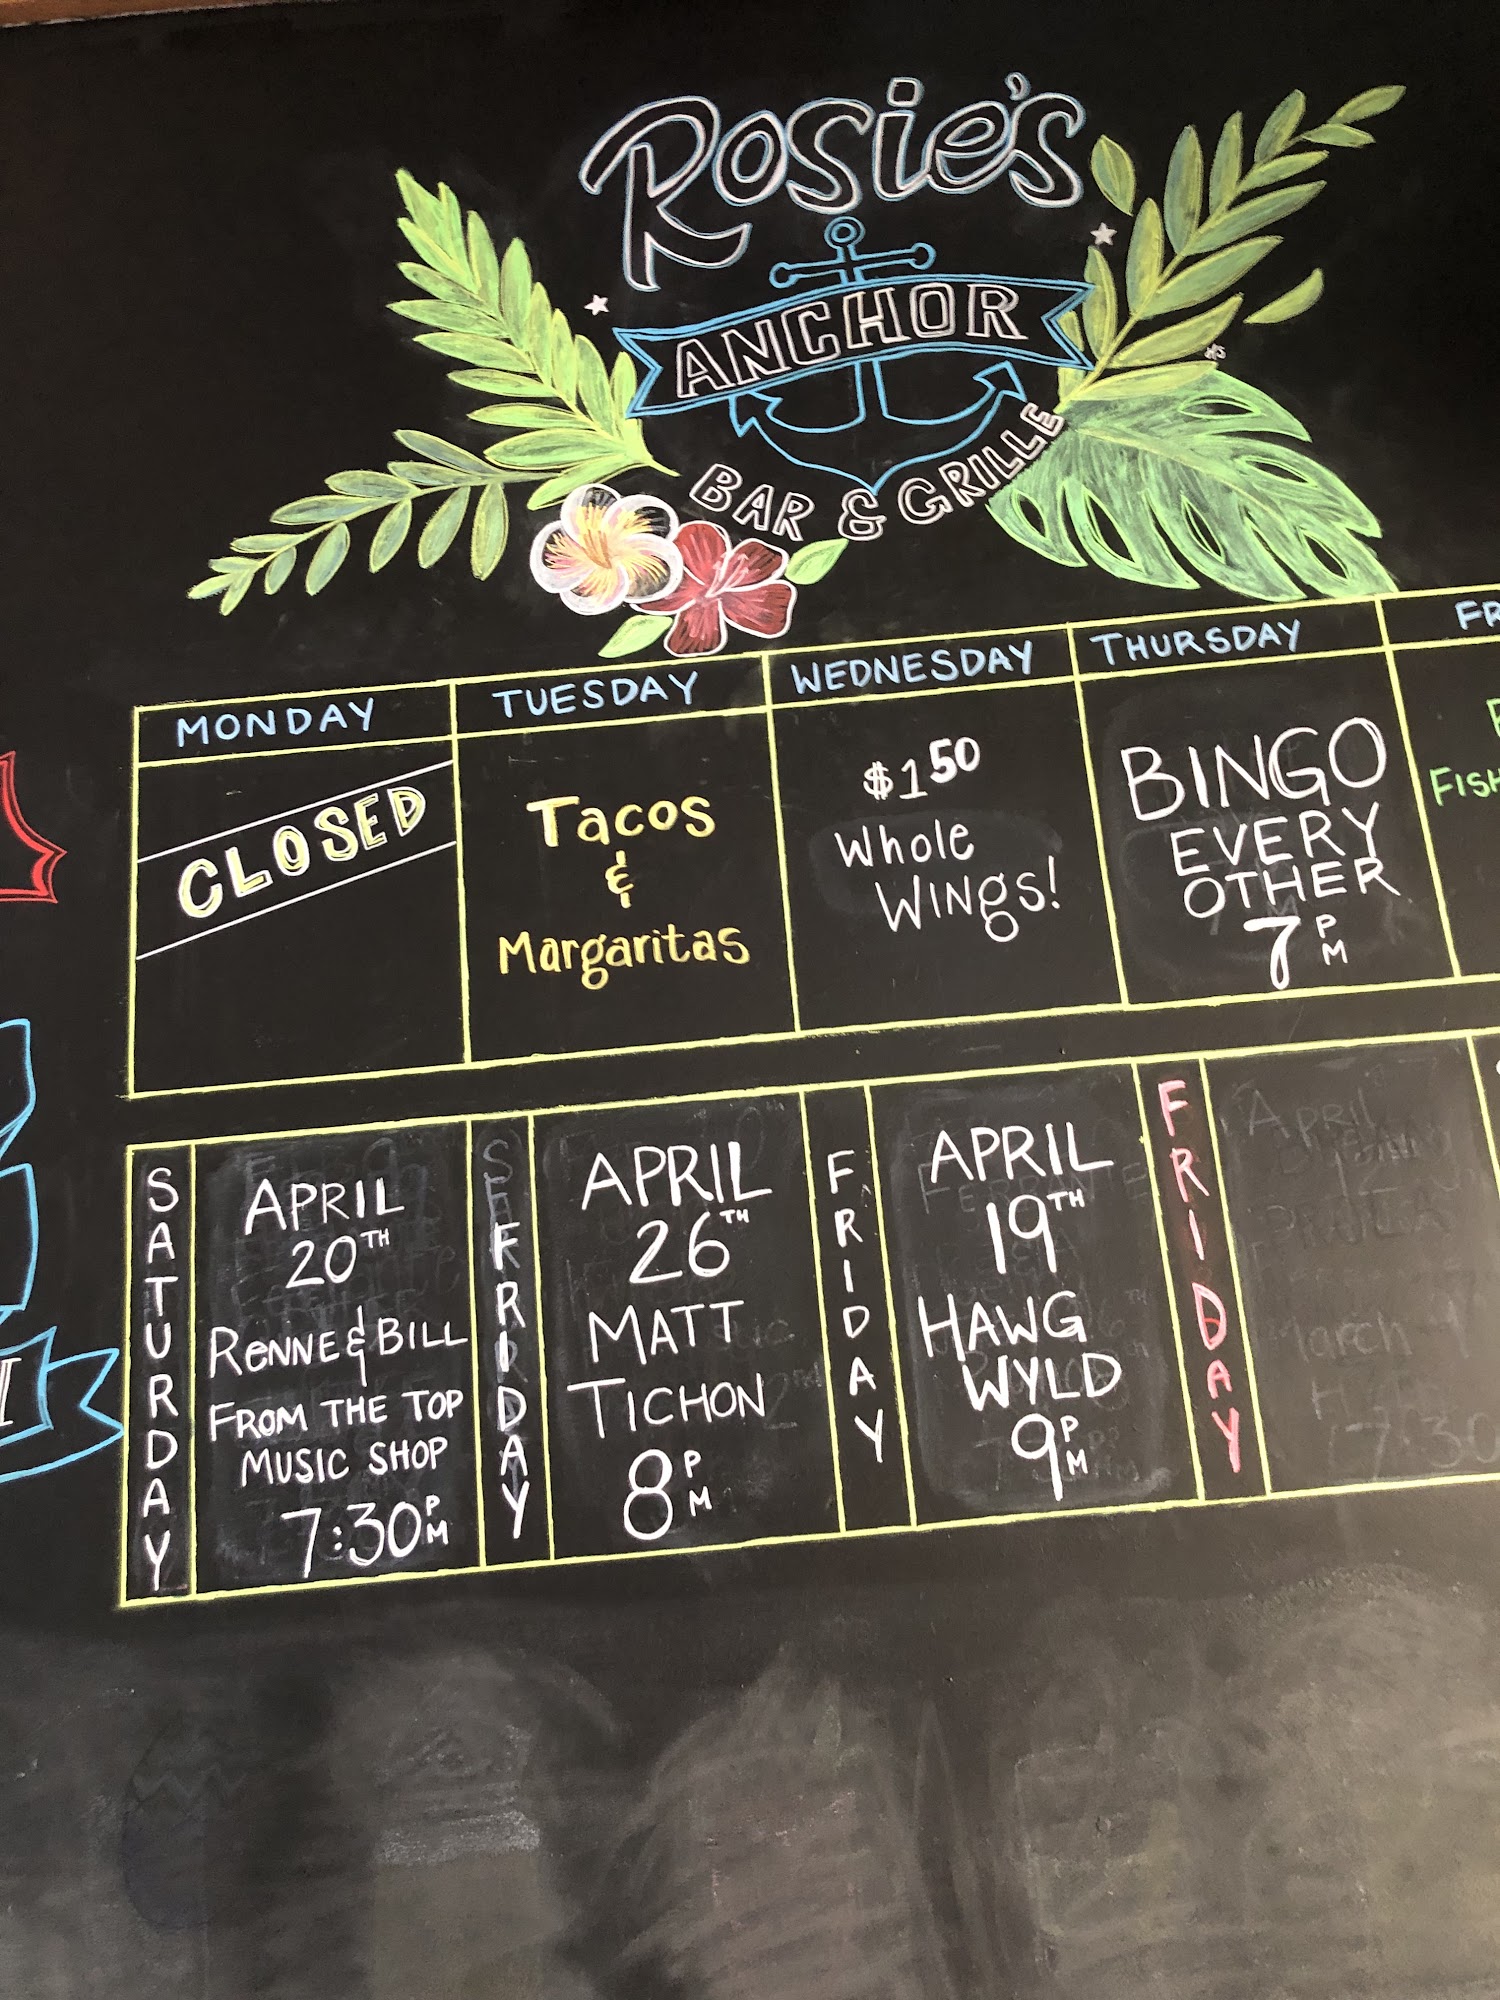 Rosie's
ANCHOR
BAR & GRILLE
MONDAY
TUESDAY
WEDNESDAY
THURSDAY
CLOSED
Tacos
&
Margaritas
$1.50
Whole
WINgs!
BINGO
EVERY
OTHER
7PM
FISH
SATURDAY
APRIL
20TH
RENNE & BILL
FROM THE TOP
MUSIC SHOP
7:30PM
FRIDAY
APRIL
26TH
MATT
TICHON
8PM
FRIDAY
APRIL
19TH
HAWG
WYLD
9PM
FRIDAY